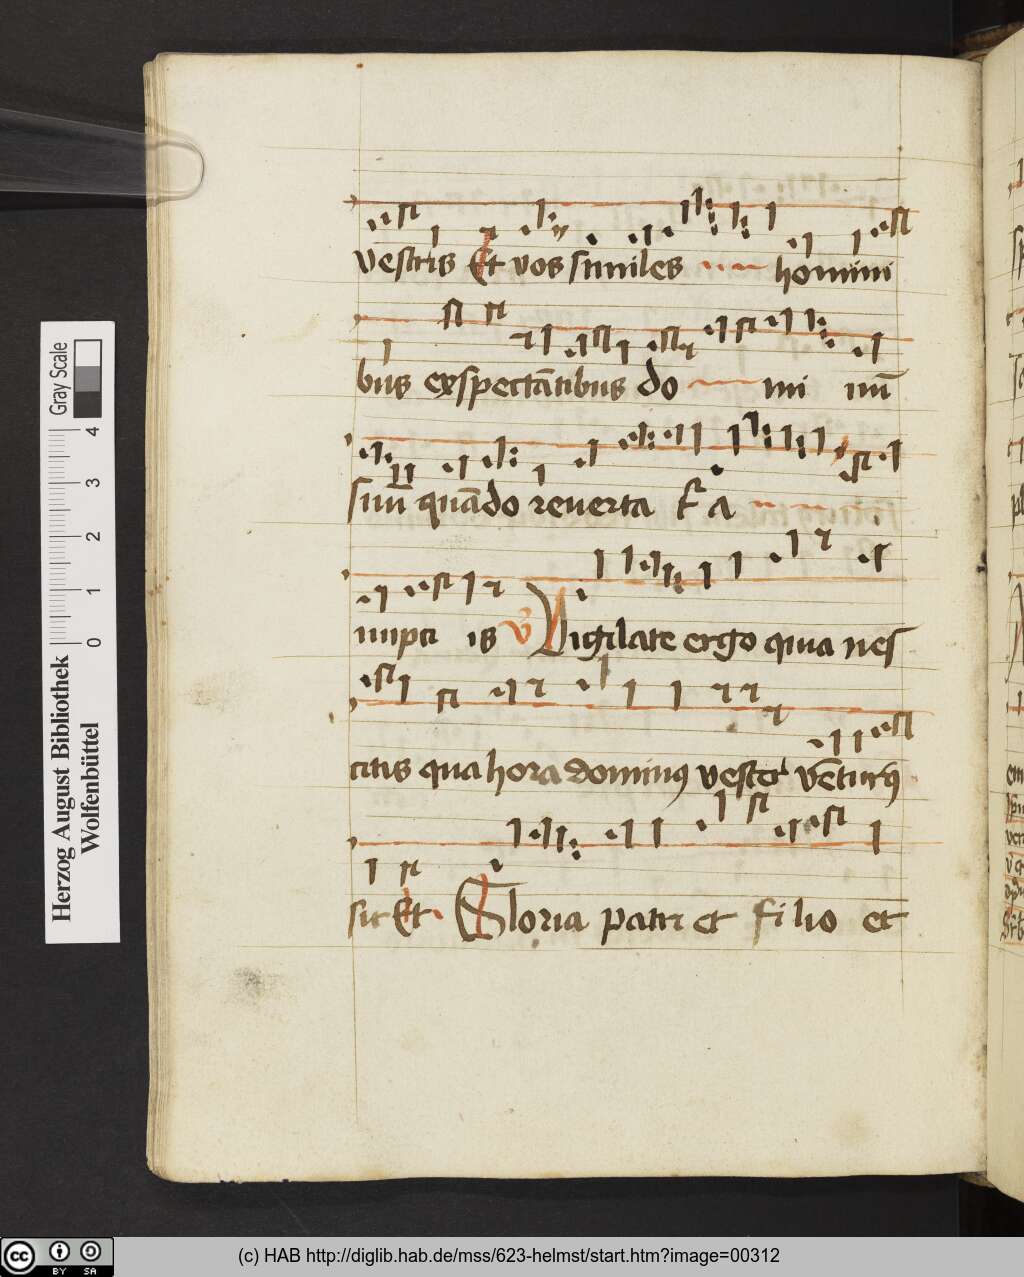 vestris Et vos similes homini
bus exspectātibus do mi nū
suū quādo reuerta t̄ A
nupci is V̄ Uigilate ergo quia nes
citis qua hora dominꝰ vester vētur9
sit Et Gloria patri et filio et
Herzog August Bibliothek
Wolfenbüttel
Gray Scale
0 1 2 3 4
cc BY SA
(c) HAB http://diglib.hab.de/mss/623-helmst/start.htm?image=00312